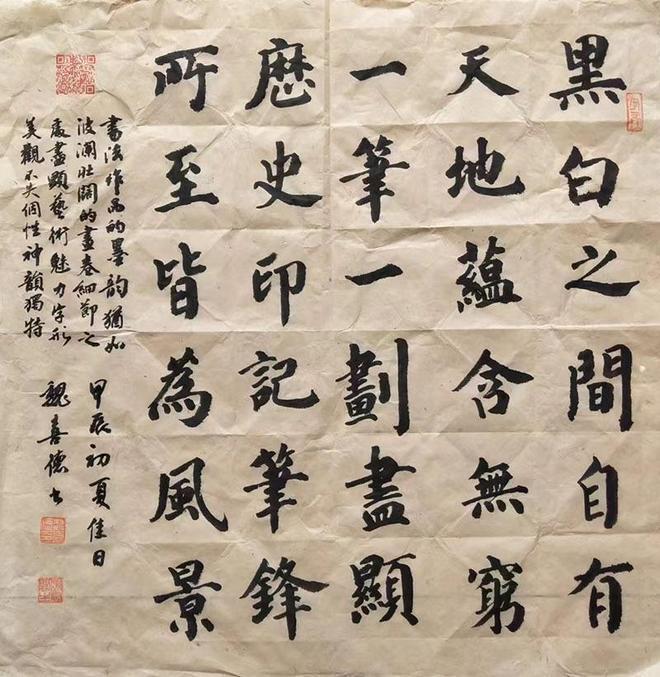 黑白之間自有
天地蘊含無窮
一筆一劃盡顯
歷史印記筆鋒
所至皆為風景
書法作品的墨韵猶如
波瀾壯闊的畫卷細節之
處盡顯藝術魅力字形
美觀不失個性神韻獨特
甲辰初夏佳日
魏喜德书